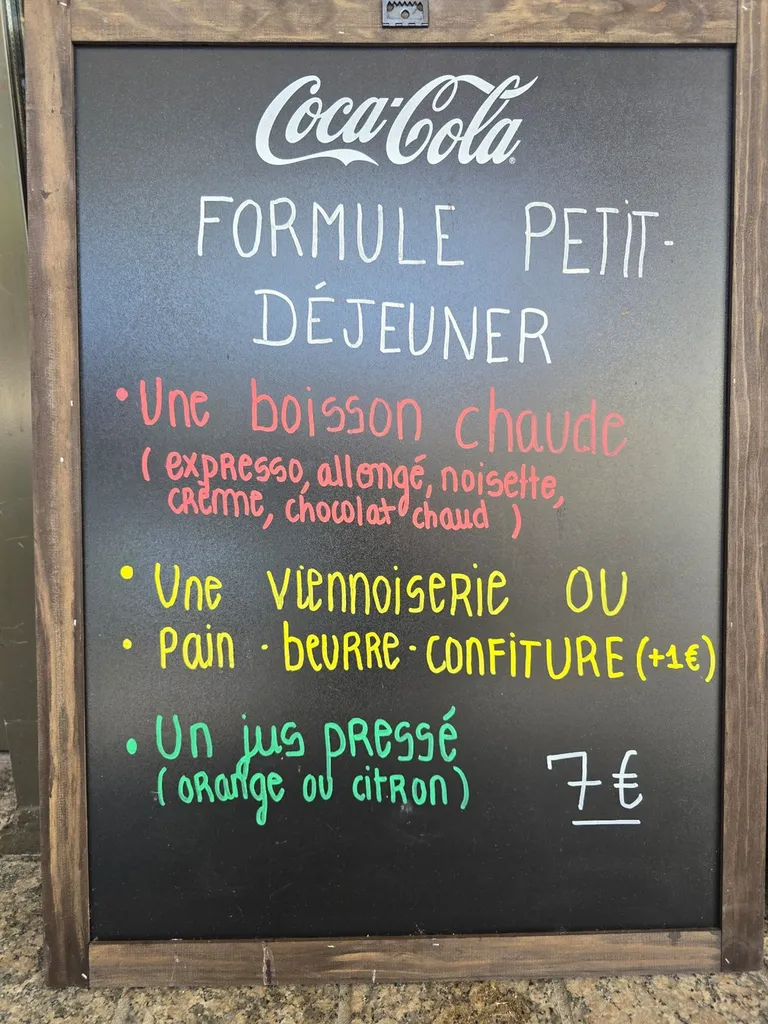 Coca-Cola
FORMULE PETIT-
DÉJEUNER
• Une boisson chaude
( expresso, allongé, noisette,
crème, chocolat chaud )
• Une viennoiserie OU
• pain - beurre - confiture (+1€)
• Un jus pressé
( orange ou citron )
7€